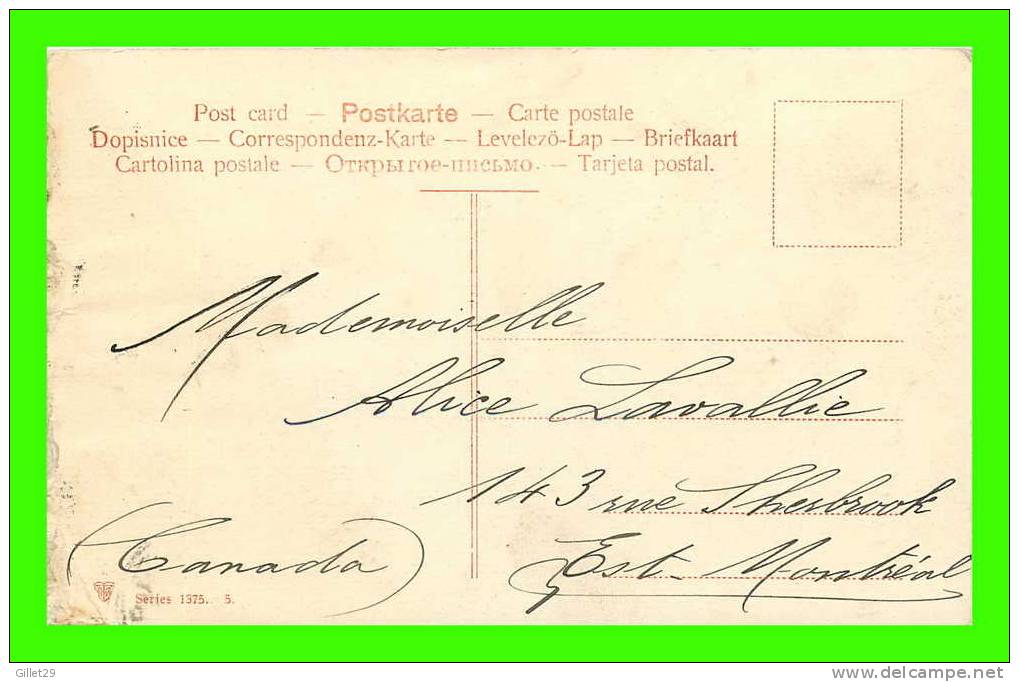 Post card — Postkarte — Carte postale
Dopisnice — Correspondenz-Karte — Levelező-Lap — Briefkaart
Cartolina postale — Открытое-письмо. — Tarjeta postal.
Mademoiselle
Alice Lavallie
143 rue Sherbrook
Est. Montréal
(Canada)
Series 1375. 5.
Gillet29
www.delcampe.net